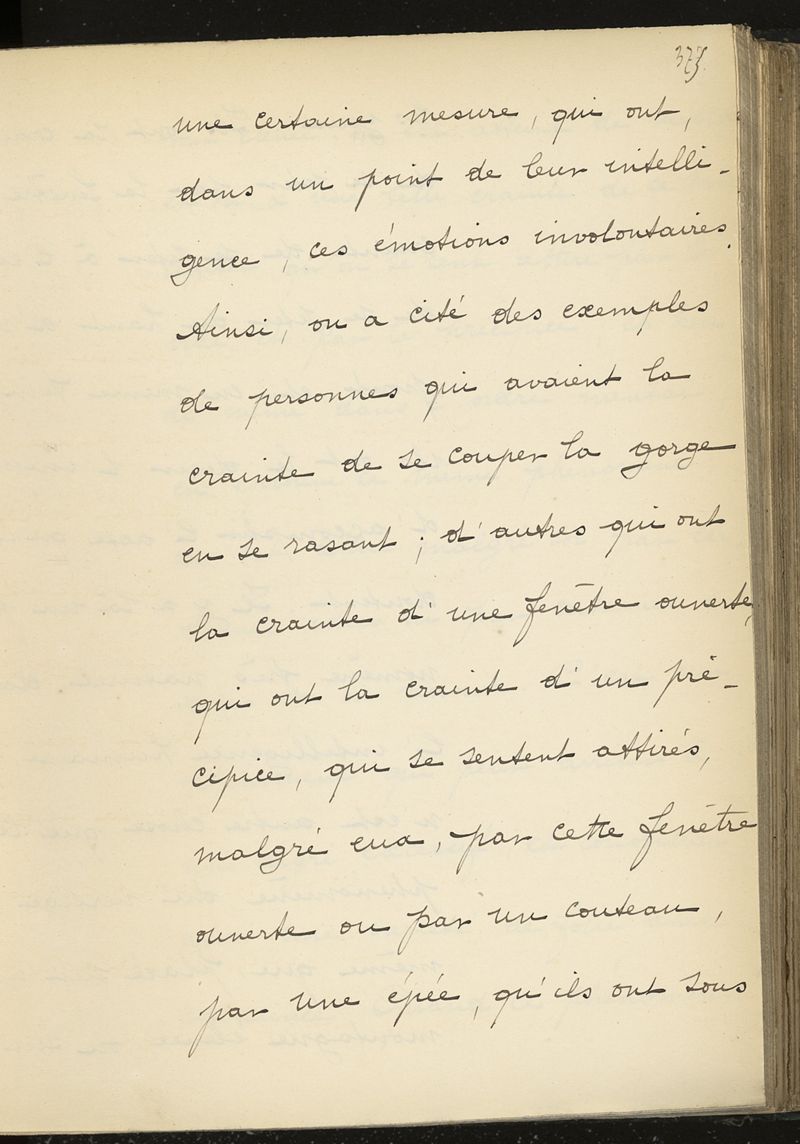 377.
une certaine mesure, qui ont,
dans un point de leur intelli-
gence, ces émotions involontaires.
Ainsi, on a cité des exemples
de personnes qui avaient la
crainte de se couper la gorge
en se rasant ; d'autres qui ont
la crainte d'une fenêtre ouverte,
qui ont la crainte d'un pré-
cipice, qui se sentent attirés,
malgré eux, par cette fenêtre
ouverte ou par un couteau,
par une épée, qu'ils ont sous